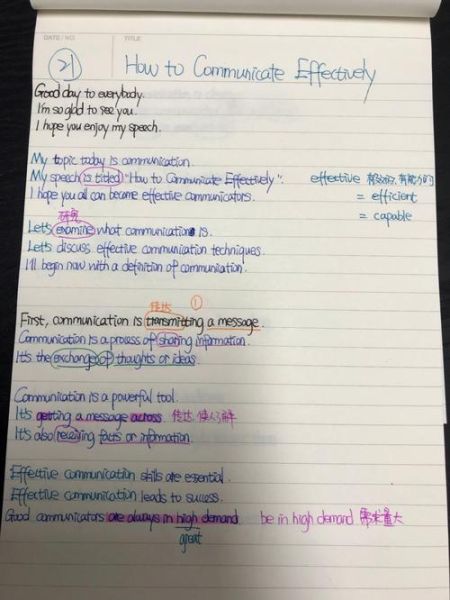 DATE / NO.
TITLE
21
How to Communicate Effectively
Good day to everybody.
I'm so glad to see you.
I hope you enjoy my speech.
My topic today is communication.
My speech is titled "How to Communicate Effectively".
effective 有效的,有能力的
I hope you all can become effective communicators.
= efficient
= capable
研究
Let's examine what communication is.
Let's discuss effective communication techniques.
I'll begin now with a definition of communication.
传达 ①
First, communication is transmitting a message.
Communication is a process of sharing information.
It's the exchange of thoughts or ideas.
Communication is a powerful tool.
It's getting a message across. 传达,使人了解
It's also receiving facts or information.
Effective communication skills are essential.
Effective communication leads to success.
Good communicators are always in high demand. be in high demand 需求量大
great